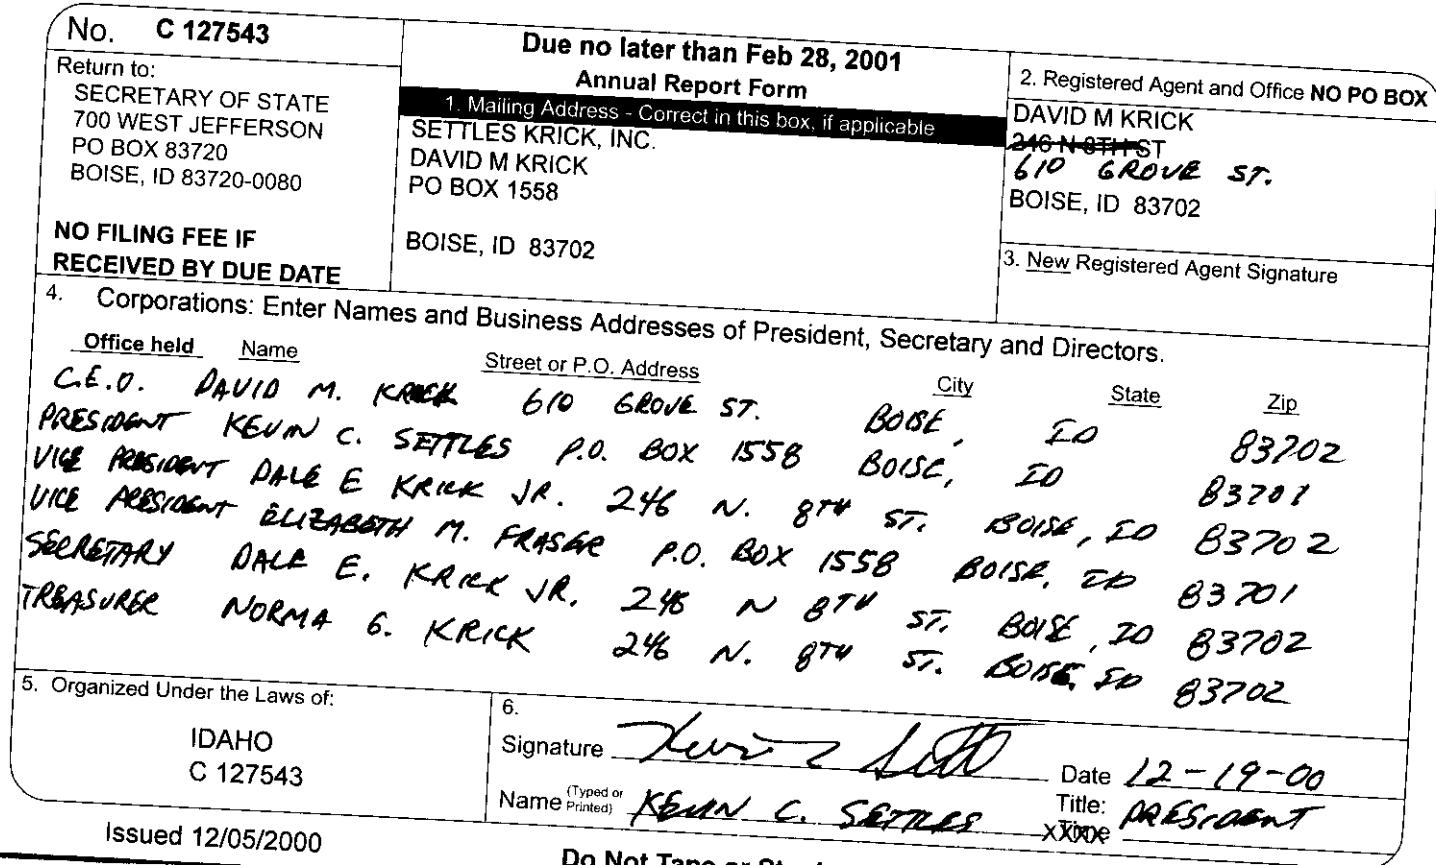 No. C 127543
Return to:
SECRETARY OF STATE
700 WEST JEFFERSON
PO BOX 83720
BOISE, ID 83720-0080
NO FILING FEE IF
RECEIVED BY DUE DATE
Due no later than Feb 28, 2001
Annual Report Form
1. Mailing Address - Correct in this box, if applicable
SETTLES KRICK, INC.
DAVID M KRICK
PO BOX 1558
BOISE, ID 83702
2. Registered Agent and Office NO PO BOX
DAVID M KRICK
246 N 8TH ST
610 GROVE ST.
BOISE, ID 83702
3. New Registered Agent Signature
4. Corporations: Enter Names and Business Addresses of President, Secretary and Directors.
Office held Name Street or P.O. Address City State Zip
C.E.O. DAVID M. KRICK 610 GROVE ST. BOISE, ID 83702
PRESIDENT KEVIN C. SETTLES P.O. BOX 1558 BOISE, ID 83701
VICE PRESIDENT DALE E KRICK JR. 246 N. 8TH ST. BOISE, ID 83702
VICE PRESIDENT ELIZABETH M. FRASER P.O. BOX 1558 BOISE, ID 83701
SECRETARY DALE E. KRICK JR. 246 N 8TH ST. BOISE, ID 83702
TREASURER NORMA G. KRICK 246 N. 8TH ST. BOISE, ID 83702
5. Organized Under the Laws of:
IDAHO
C 127543
6.
Signature Date 12-19-00
Name (Typed or Printed) KEVIN C. SETTLES Title: PRESIDENT
Issued 12/05/2000
Do Not Tape or